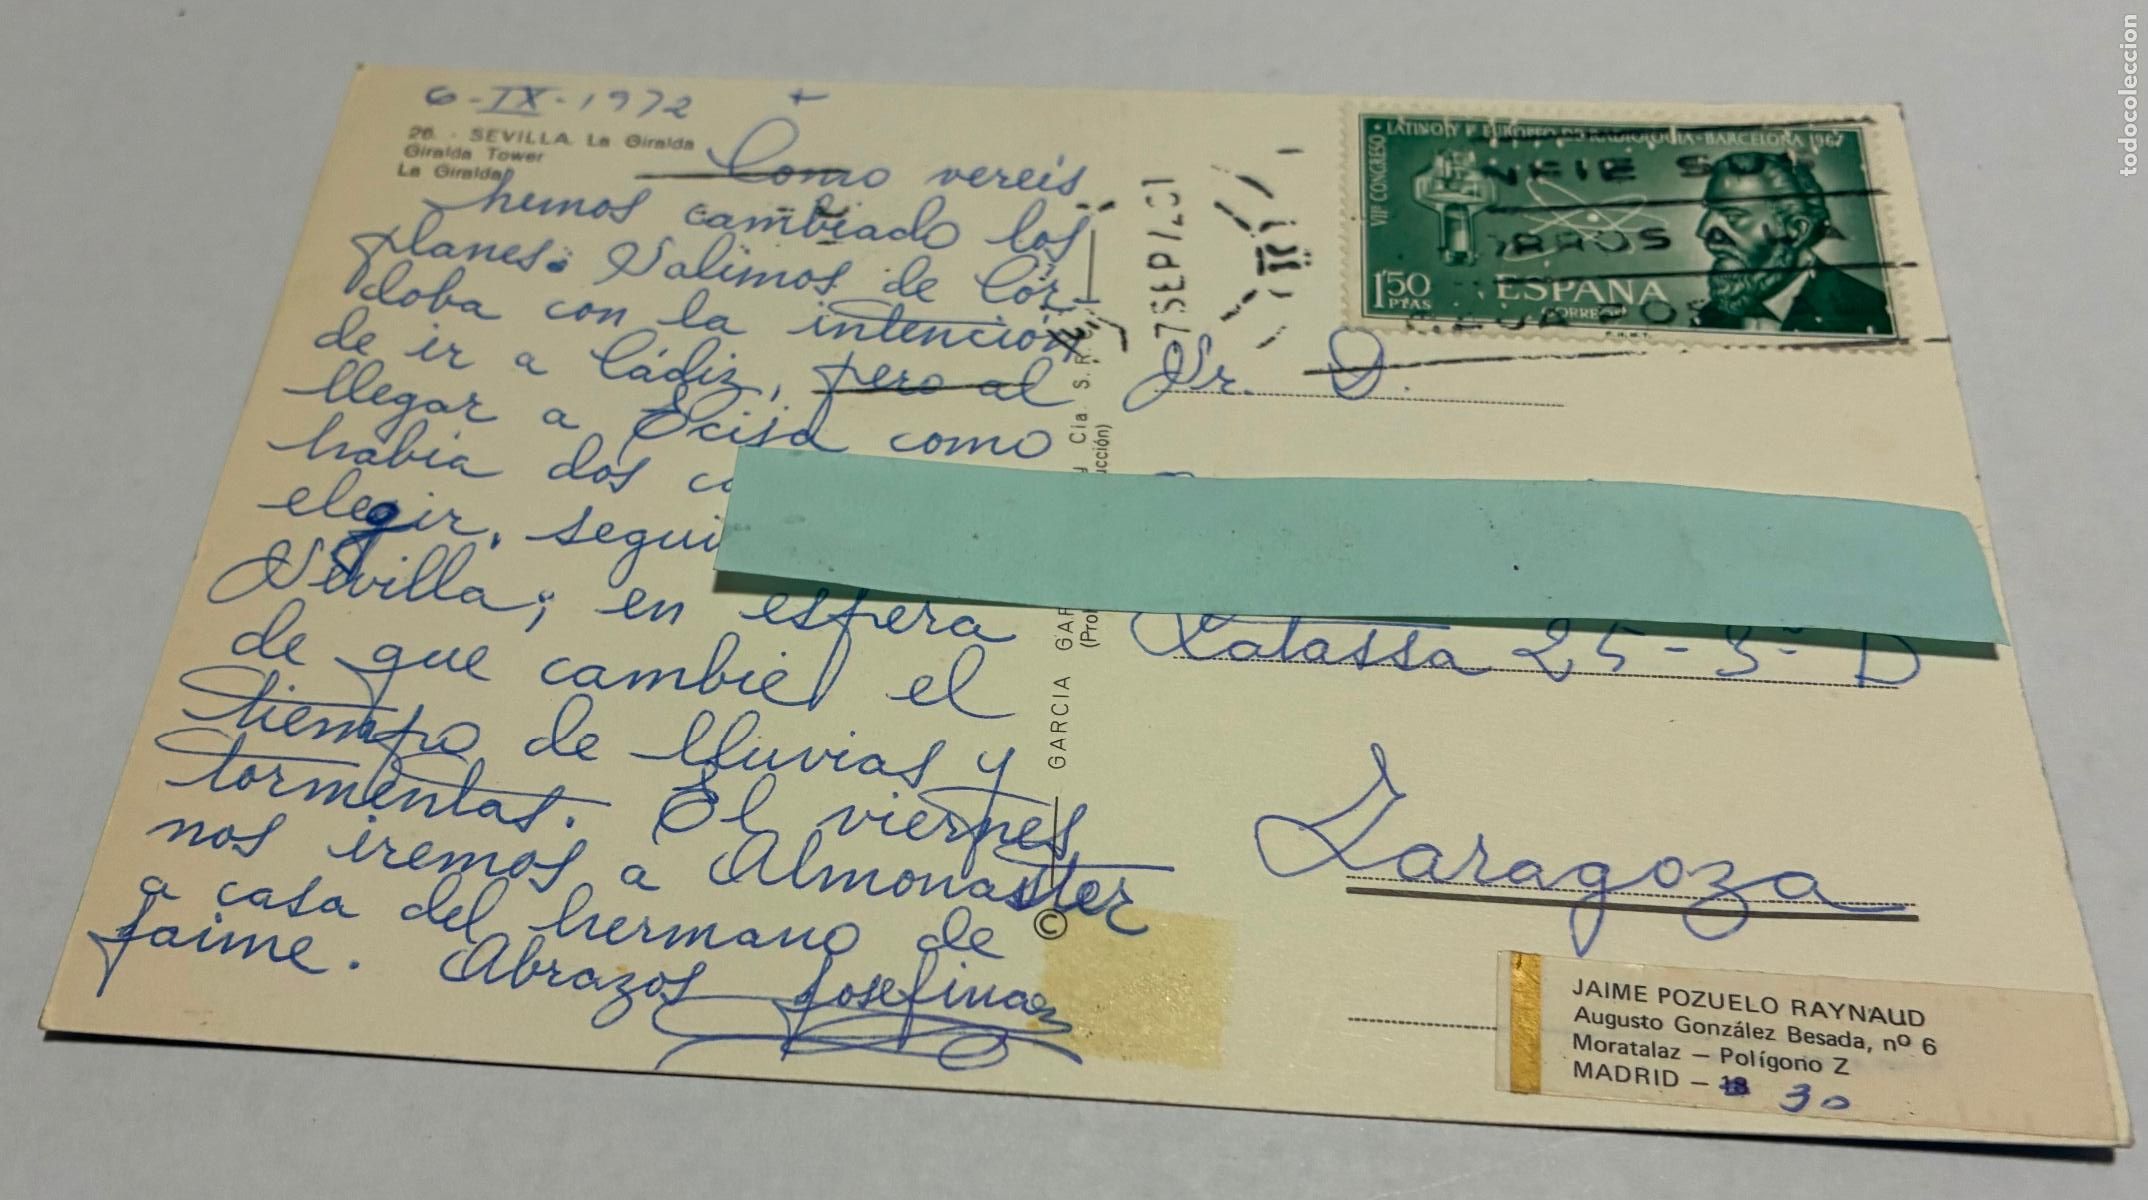 6-IX-1972 +
26. - SEVILLA. La Giralda
Giralda Tower
La Giralda
Como vereis
hemos cambiado los
planes. Salimos de Cór-
doba con la intención
de ir a Cádiz, pero al
llegar a Ecisa como
habia dos
elegir, segui
Sevilla; en espera
de que cambie el
tiempo de lluvias y
tormentas. El viernes
nos iremos a Almonaster
a casa del hermano de
Jaime. Abrazos Josefina
GARCIA GAR
y Cia. S. R. C.
(Pro
ucción)
©
7 SEP 72
VIIº CONGRESO LATINO Y Iº EUROPEO DE RADIOLOGIA - BARCELONA 1967
1'50
PTAS
ESPAÑA
CORREOS
F.N.M.T.
Sr. D.
Latassa 25-3º D
Zaragoza
JAIME POZUELO RAYNAUD
Augusto González Besada, nº 6
Moratalaz — Polígono Z
MADRID — 18 30
todocoleccion